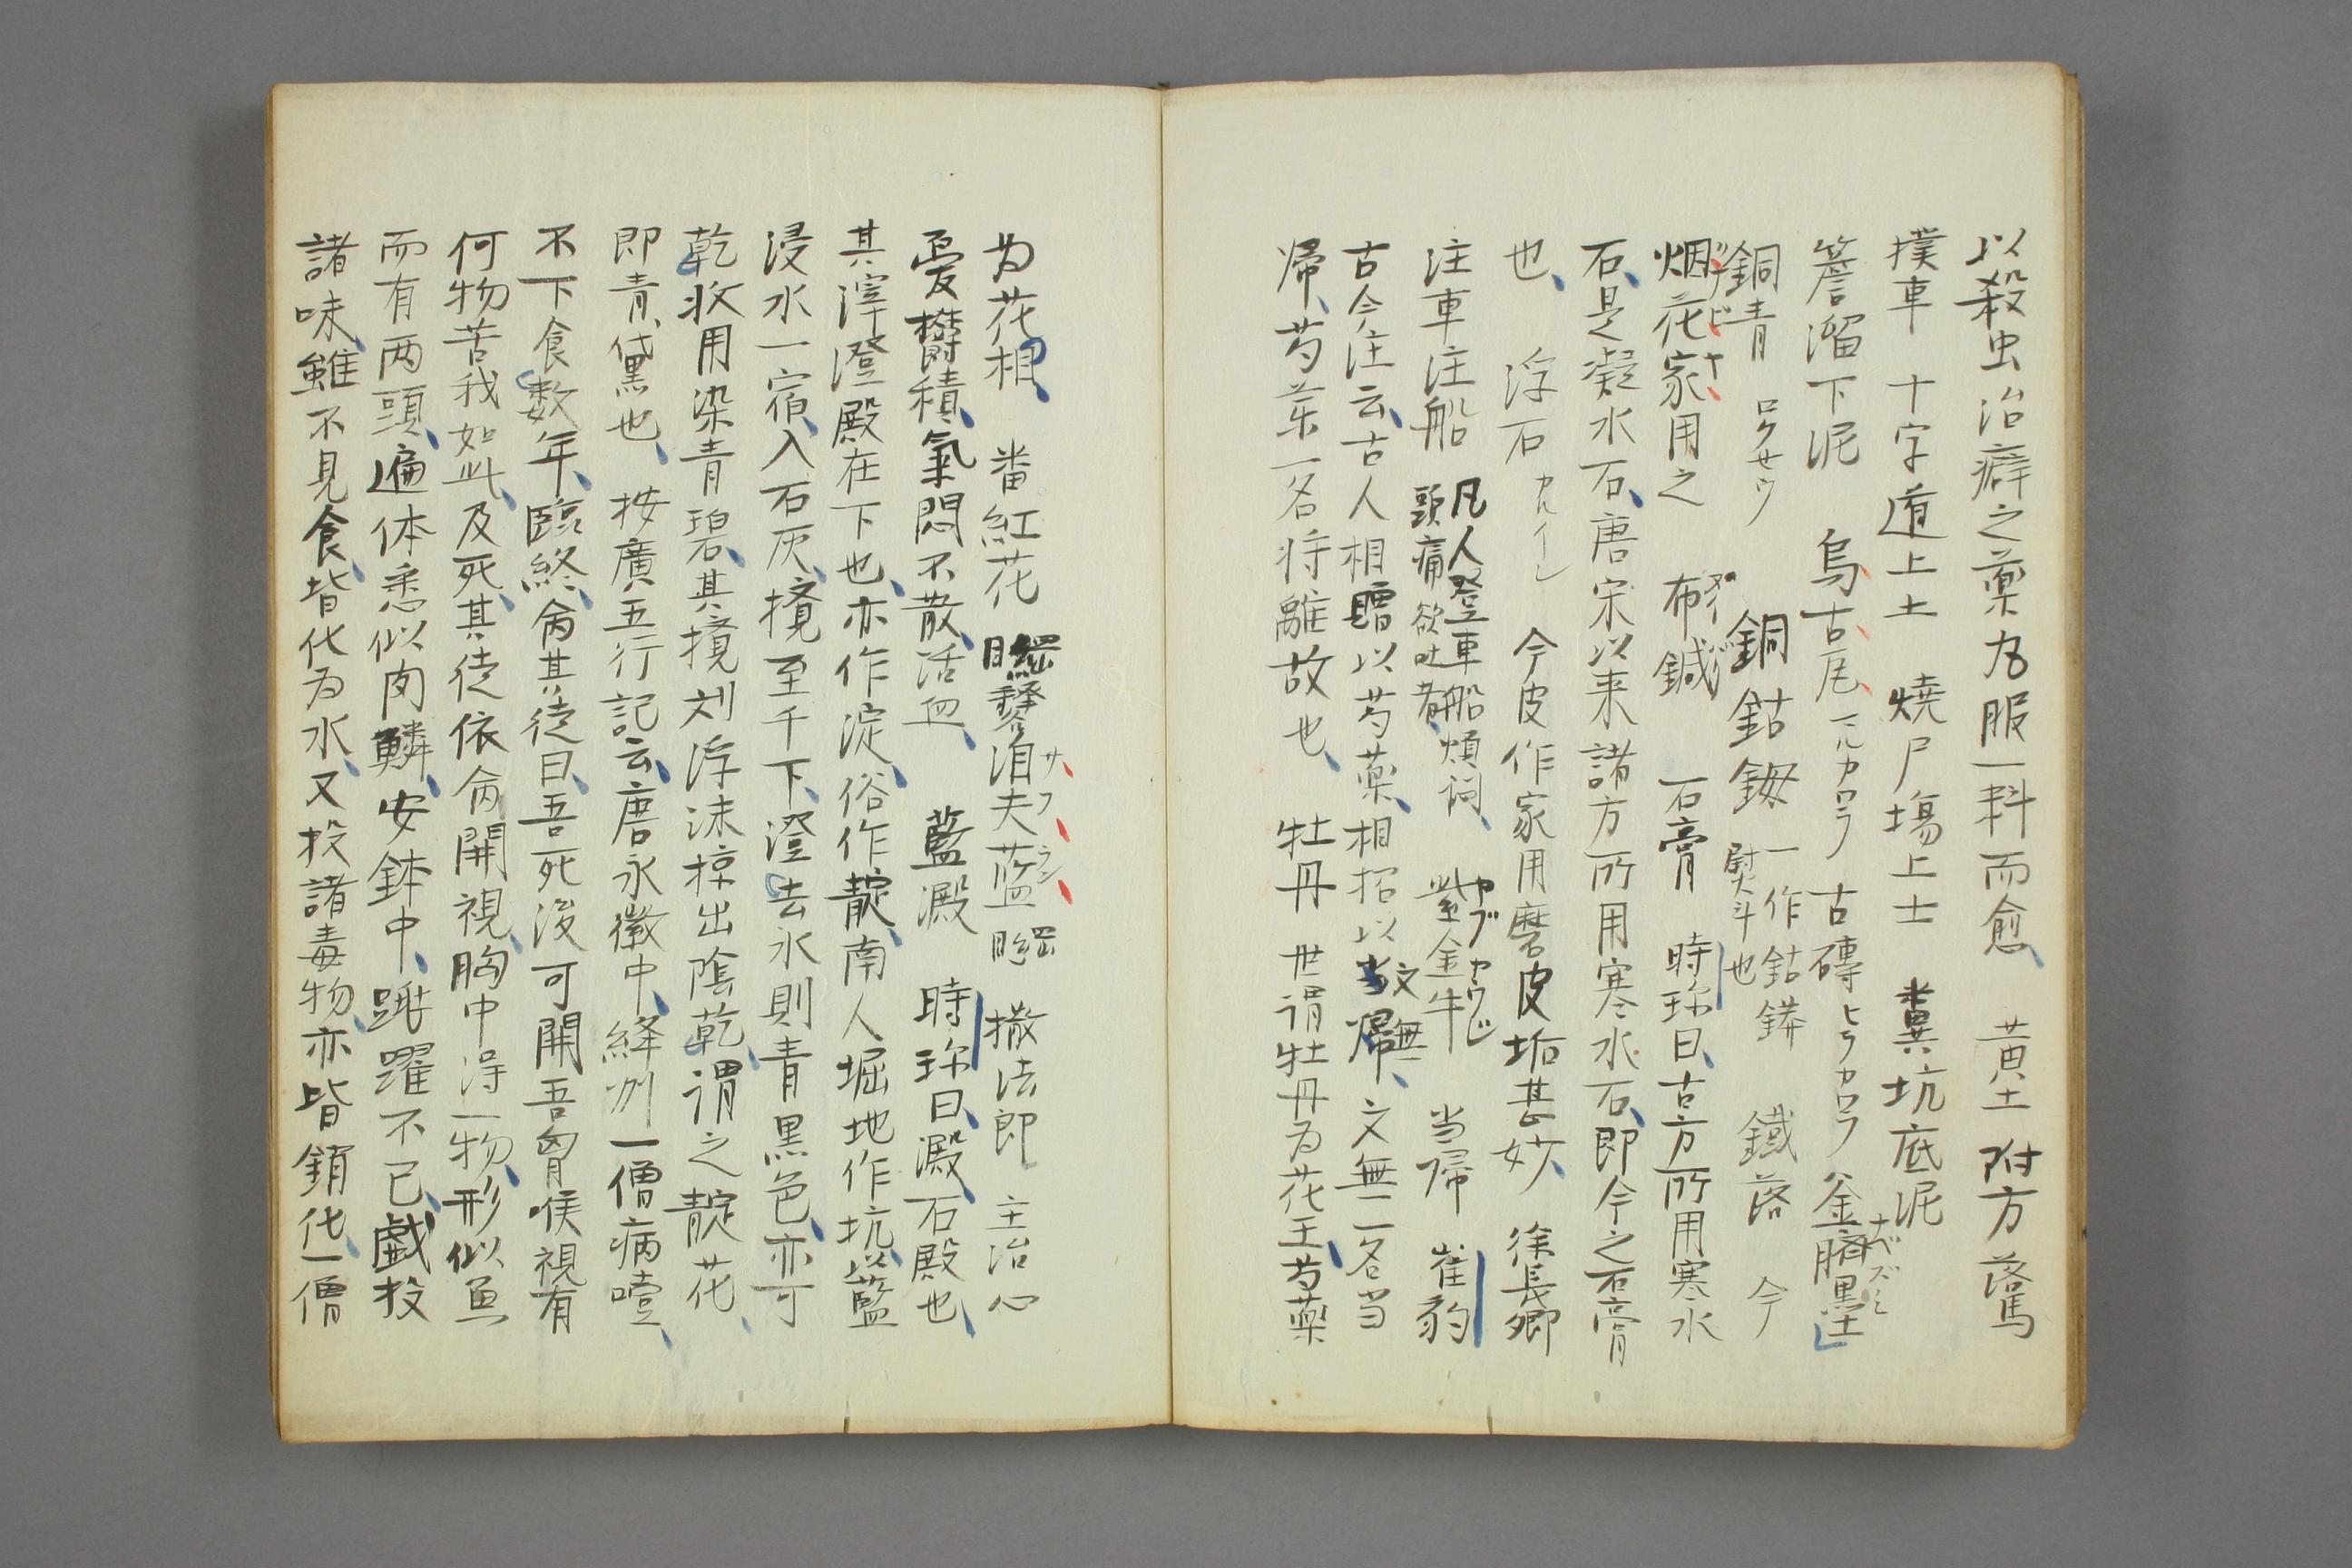 以殺虫治癖之藥为服一料而愈、 黄土 附方 落馬
撲車 十字道上土 燒尸場上土 糞坑底泥
簷溜下泥 烏古瓦 フルカワラ 古磚 ヒラカワラ 釜臍黒 ナベズミ
銅青 ロクセウ 銅鈷鉧 一作鈷䥈 熨斗也 鐵落 今
烟花家用之 布鍼 石膏 時珍曰、古方所用寒水
石、是凝水石、唐宋以来諸方所用寒水石、即今之石膏
也、 浮石 カルイシ 今皮作家用磨皮垢甚妙、 徐長卿
注車注船 凡人登車船煩悶、頭痛欲吐者、 紫金牛 ヤブカウジ 当帰 崔豹
古今注云、古人相贈以芍薬、相招以文無、文無一名当
帰、芍薬一名将離故也、 牡丹 世謂牡丹为花王、芍薬
为花相、 番紅花 洎夫藍 サフラン 撒法郎 主治心
憂欝積、氣悶不散、活血、 藍澱 時珍曰、澱、石殿也、
其滓澄殿在下也、亦作淀、俗作靛、南人堀地作坑、以藍
浸水一宿、入石灰、攪至千下、澄去水、則青黒色、亦可
乾收用染青碧、其攪刈浮沫掠出陰乾、謂之靛花、
即青黛也、 按廣五行記云、唐永徽中、絳州一僧病噎、
不下食数年、臨終、命其徒曰、吾死後可開吾胷喉視有
何物苦我如此、及死、其徒依命開視、胸中得一物、形似魚
而有两頭、遍体悉似肉鱗、安鉢中、跳躍不已、戯投
諸味、雖不見食、皆化为水、又投諸毒物、亦皆銷化、一僧